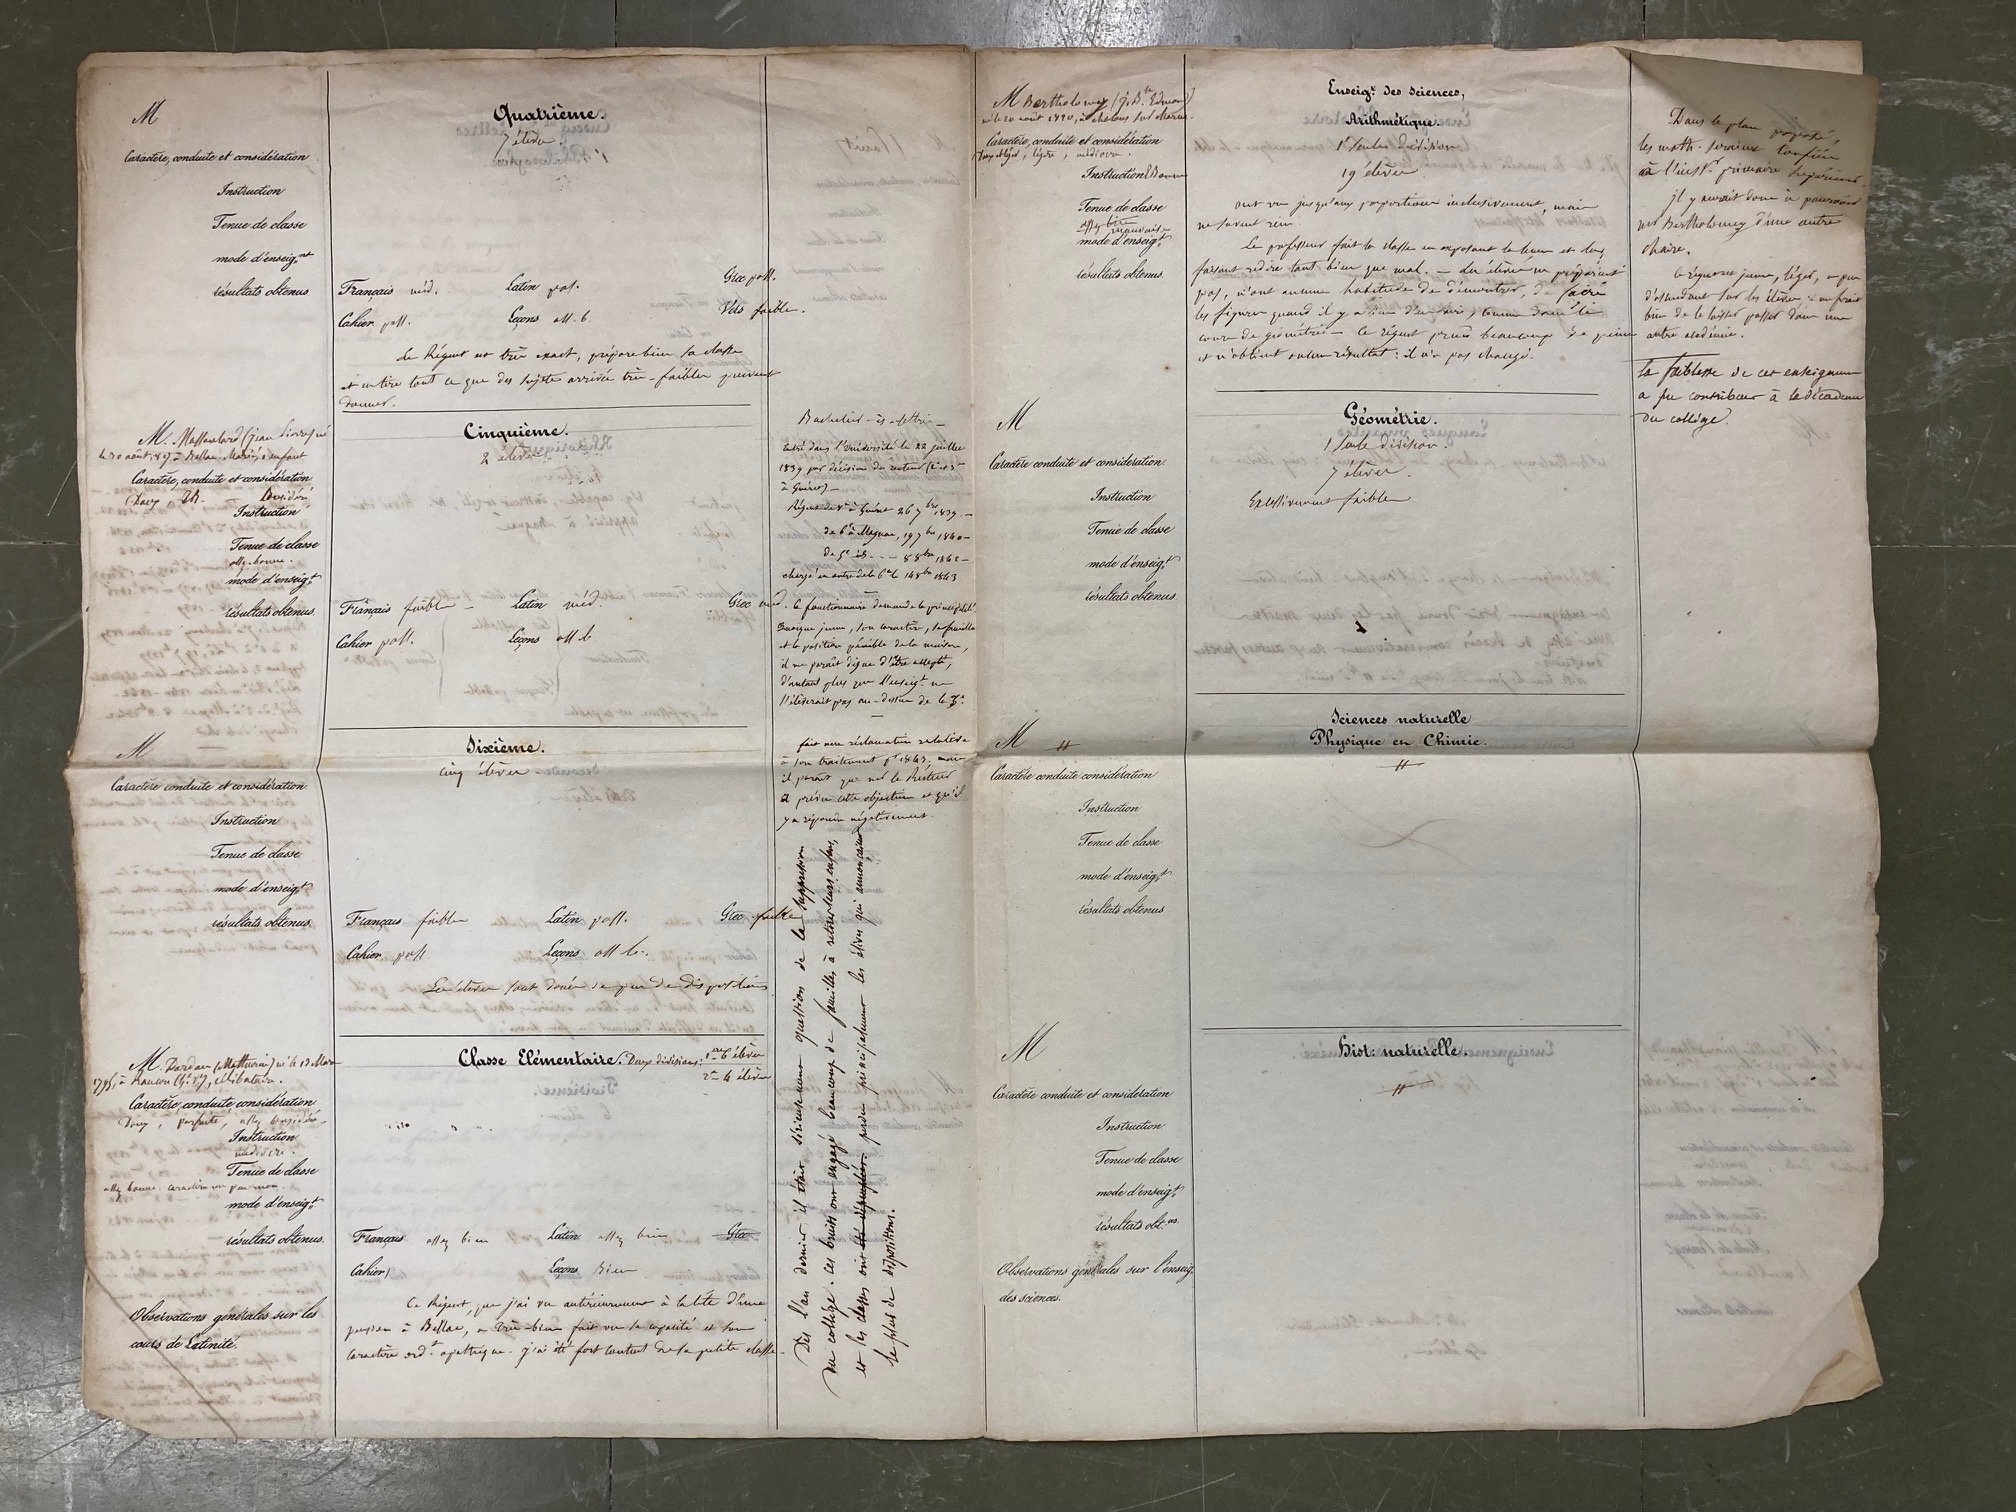 M
Caractère, conduite et considération
Instruction
Tenue de classe
mode d'enseig.nt
résultats obtenus
Quatrième.
7 élèves.
Français méd. Latin pass. Grec pass.
Cahier pass. Leçons ass. b. Vers faible.
Le Régent est très exact, prépare bien sa classe
et en tire tout ce que des sujets arrivés très-faibles peuvent
donner.
M. Massoulard (Jean
le 30 août à Bellac. Marié, 1 enfant
Caractère, conduite et considération
Doux Considéré
Instruction
Tenue de classe
assez bonne.
mode d'enseig.t
résultats obtenus
Cinquième.
2 élèves
Français faible Latin méd. Grec méd.
Cahier pass. Leçons ass. b
Bachelier-ès-lettres
entré dans l'Université le 22 juillet
1839 par décision du recteur
à Guéret
Régent de à Guéret 26 7bre 1839.
de 6e à Magnac, 19 7bre 1840
de 5e id. 8 8bre 1842
chargé en outre de la 6e le 14 8bre 1843
Ce fonctionnaire demande le principalat.
Quoique jeune, son caractère, sa famille
et la position pénible de la maison,
il me paraît digne d'être accepté,
d'autant plus que l'enseig.t ne
s'élèverait pas au-dessus de la
fait une réclamation relative
à son traitement pr 1843, mais
il paraît que mr le Recteur
a prévu cette objection et qu'il
y a répondu négativement.
M
Caractère conduite et considération.
Instruction
Tenue de classe
mode d'enseig.t
résultats obtenus
Sixième.
cinq élèves
Français faible Latin pass. Grec faible
Cahier pass Leçons ass b.
Les élèves sont doués de peu de dispositions
M. Dardan (Mathurin) né le 13 Mars
1795, à Rancon (hte Vne), célibataire.
Caractère, conduite, considération
Doux, parfaite, assez considéré
Instruction
médiocre.
Tenue de classe
assez bonne. caractère un peu mou
mode d'enseig.t
résultats obtenus.
Classe Elémentaire. Deux divisions: 1ère 6 élèves
2e 4 élèves
Français assez bien Latin assez bien Grec
Cahier Leçons Bien
Ce Régent, que j'ai vu antérieurement à la tête d'une
pension à Bellac, a très-bien fait vu sa capacité et son
caractère ord.t apathique. j'ai été fort content de sa petite classe.
Observations générales sur les
cours de Latinité.
Dès l'an dernier il était sérieusement question de la suppression
du collège. ces bruits ont engagé beaucoup de familles à retirer leurs enfans,
et les classes ont été dépeuplées perdu principalement les élèves qui annonçaient
le plus de dispositions.
M Bertholomey (J. Bte Edmond)
né le 20 août 1820, à Chalons sur Marne.
Caractère, conduite et considération
léger, médiocre.
Instruction Bonne
Tenue de classe
assez bien mauvaise
mode d'enseig.t
résultats obtenus.
Enseig.t des sciences,
Arithmétique.
1 seule division
19 élèves
ont vu jusqu'aux proportions inclusivement, mais
ne savent rien.
Le professeur fait la classe en exposant la leçon et la
faisant redire tant bien que mal. — Les élèves ne préparent
pas, n'ont aucune habitude de démontrer, de faire
les figures quand il y a lieu d'en faire, comme dans le
cours de géométrie — Ce régent prend beaucoup de peine
et n'obtient aucun résultat : il n'a pas changé.
Dans le plan proposé,
les math. seraient confiées
à l'inst.r primaire supérieur.
il y aurait donc à pourvoir
mr Bertholomey d'une autre
chaire.
Ce régent est jeune, léger, a peu
d'ascendant sur les élèves : on ferait
bien de le laisser passer dans une
autre académie.
La faiblesse de cet enseignement
a pu contribuer à la décadence
du collège.
M
Caractère conduite et considération.
Instruction
Tenue de classe
mode d'enseig.t
résultats obtenus
Géométrie.
1 seule division.
7 élèves
Excessivement faible
M "
Caractère conduite considération
Instruction
Tenue de classe
mode d'enseig.t
résultats obtenus
Sciences naturelle
Physique en Chimie.
"
M
Caractère conduite et considération
Instruction
Tenue de classe
mode d'enseig.t
résultats obt.us
Hist: naturelle.
"
Observations générales sur l'enseig.
des sciences.